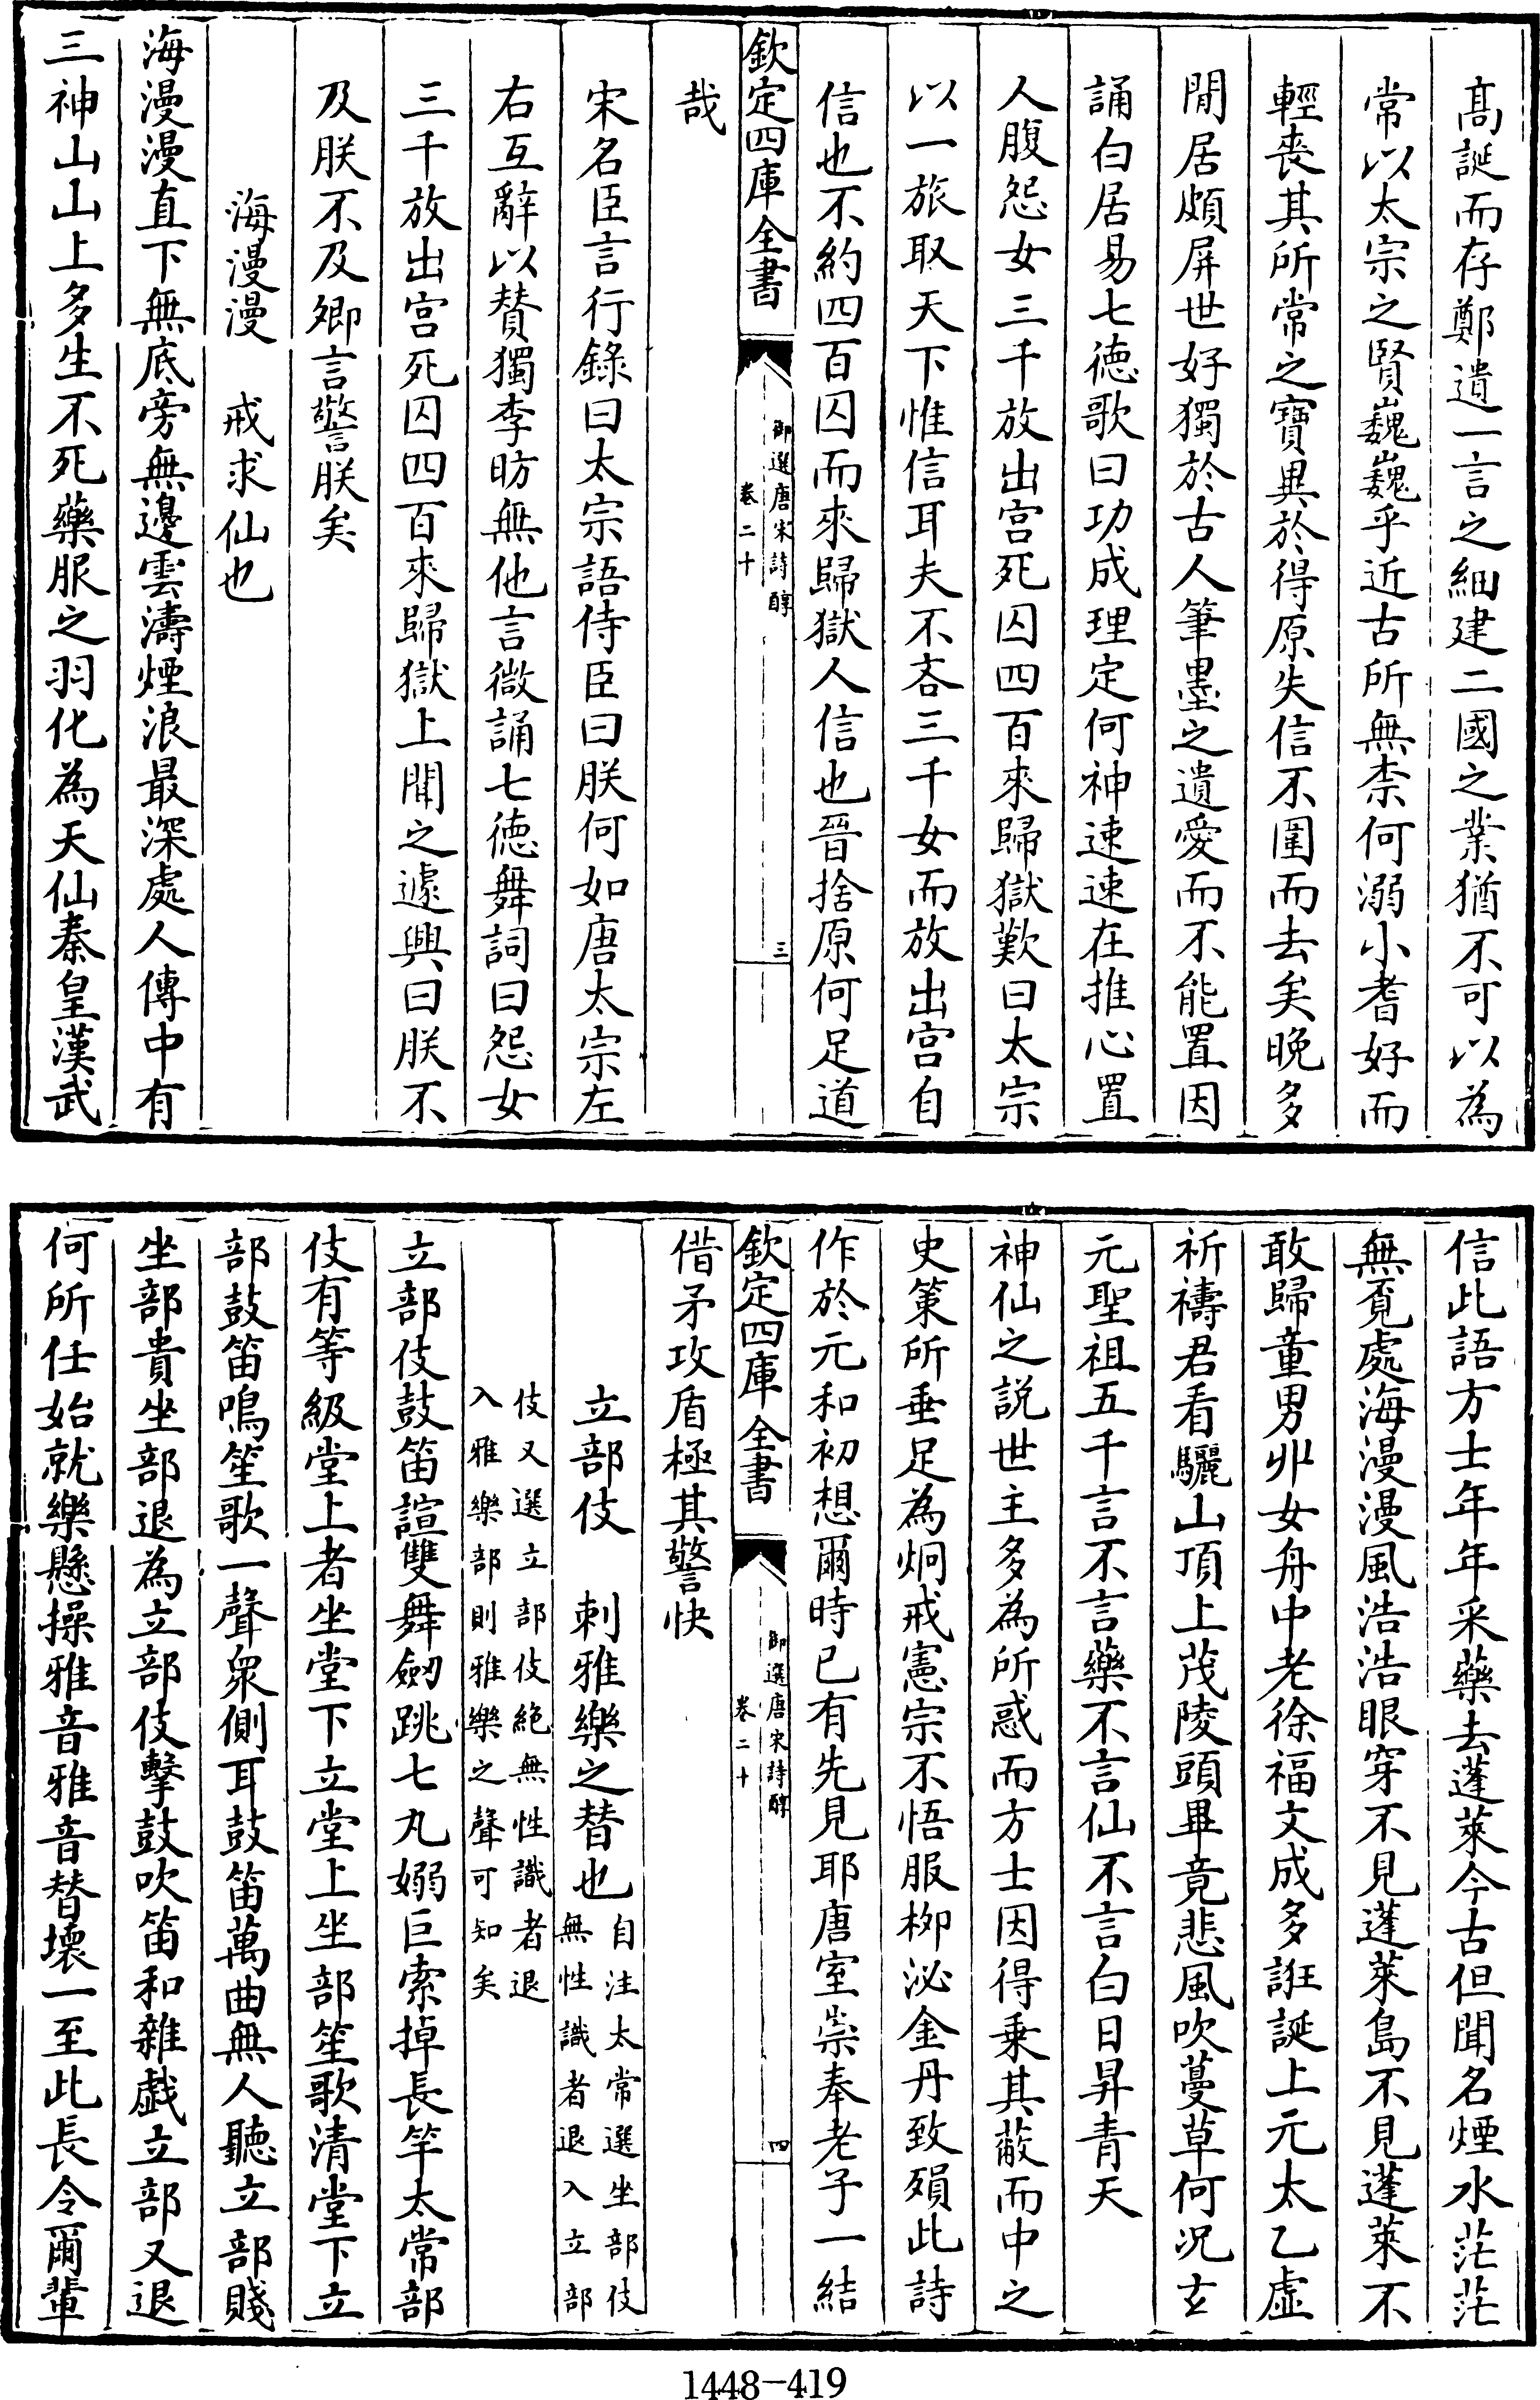 髙誕而存鄭遺一言之細建二國之業猶不可以為
常以太宗之賢巍巍乎近古所無柰何溺小耆好而
輕喪其所常之寶異於得原失信不圍而去矣晚多
閒居頗屏世好獨於古人筆墨之遺愛而不能置因
誦白居易七徳歌曰功成理定何神速速在推心置
人腹怨女三千放出宫死囚四百來歸獄歎曰太宗
以一旅取天下惟信耳夫不吝三千女而放出宫自
信也不約四百囚而來歸獄人信也晉捨原何足道
欽定四庫全書
御選唐宋詩醇
卷二十
三
哉
宋名臣言行錄曰太宗語侍臣曰朕何如唐太宗左
右互辭以賛獨李昉無他言微誦七徳舞詞曰怨女
三千放出宫死囚四百來歸獄上聞之遽興曰朕不
及朕不及卿言警朕矣
海漫漫　戒求仙也
海漫漫直下無底旁無邊雲濤煙浪最深處人傳中有
三神山山上多生不死藥服之羽化為天仙秦皇漢武
信此語方士年年采藥去蓬萊今古但聞名煙水茫茫
無覔處海漫漫風浩浩眼穿不見蓬萊島不見蓬萊不
敢歸童男丱女舟中老徐福文成多誑誕上元太乙虛
祈禱君看驪山頂上茂陵頭畢竟悲風吹蔓草何况玄
元聖祖五千言不言藥不言仙不言白日昇青天
神仙之説世主多為所惑而方士因得乗其蔽而中之
史策所垂足為炯戒憲宗不悟服柳泌金丹致殞此詩
作於元和初想爾時已有先見耶唐室崇奉老子一結
欽定四庫全書
御選唐宋詩醇
卷二十
四
借矛攻盾極其警快
立部伎　刺雅樂之替也自注太常選坐部伎
無性識者退入立部
伎又選立部伎絶無性識者退
入雅樂部則雅樂之聲可知矣
立部伎鼓笛諠雙舞劒跳七丸嫋巨索掉長竿太常部
伎有等級堂上者坐堂下立堂上坐部笙歌清堂下立
部鼓笛鳴笙歌一聲衆側耳鼓笛萬曲無人聽立部賤
坐部貴坐部退為立部伎擊鼓吹笛和雜戱立部又退
何所任始就樂懸操雅音雅音替壞一至此長令爾輩
1448-419